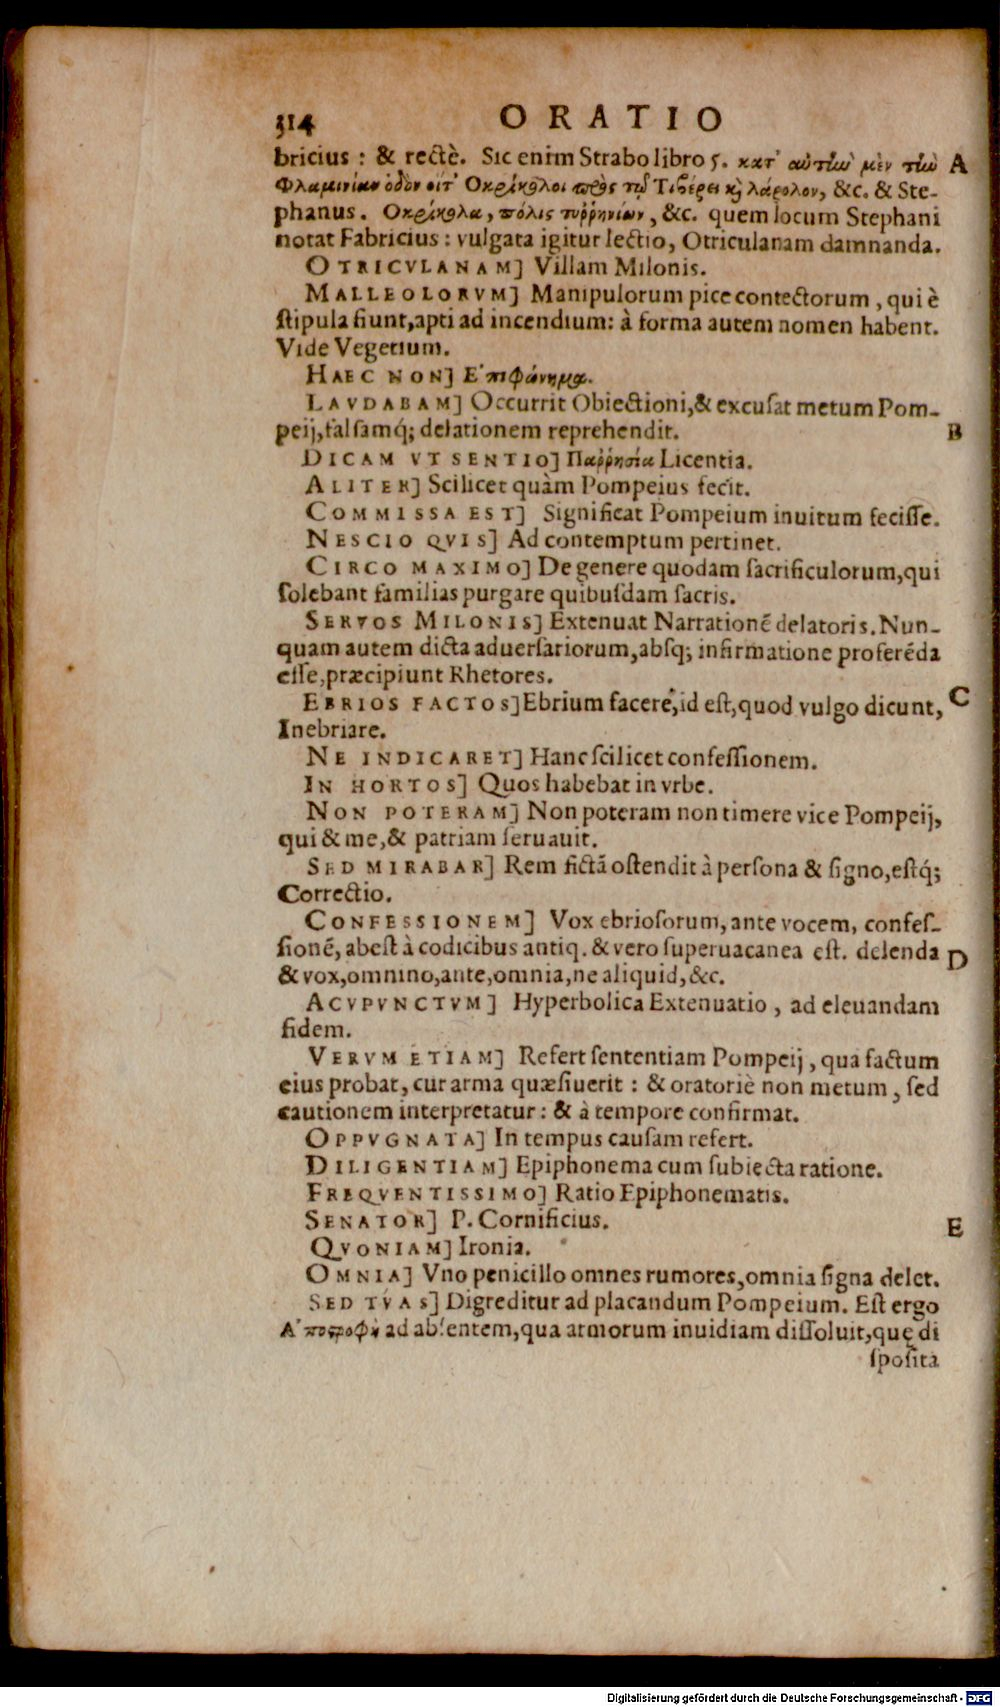 314 ORATIO
bricius : & rectè. Sic enim Strabo libro 5. κατ' αὐτὴν μὲν τὴν A
Φλαμινίαν ὁδὸν οἵτ' Οκρίκολοι πρὸς τῷ Τιβέρει καὶ λάρολον, &c. & Ste-
phanus. Οκρίκολα, πόλις τυῤῥηνίων, &c. quem locum Stephani
notat Fabricius : vulgata igitur lectio, Otriculanam damnanda.
OTRICVLANAM] Villam Milonis.
MALLEOLORVM] Manipulorum pice contectorum, qui è
ſtipula fiunt, apti ad incendium: à forma autem nomen habent.
Vide Vegetium.
HAEC NON] Ε'πιφώνημα.
LAVDABAM] Occurrit Obiectioni, & excuſat metum Pom-
peij, falſamq́; delationem reprehendit. B
DICAM VT SENTIO] Παῤῥησία Licentia.
ALITER] Scilicet quàm Pompeius fecit.
COMMISSA EST] Significat Pompeium inuitum feciſſe.
NESCIO QVIS] Ad contemptum pertinet.
CIRCO MAXIMO] De genere quodam ſacrificulorum, qui
ſolebant familias purgare quibuſdam ſacris.
SERVOS MILONIS] Extenuat Narrationē delatoris. Nun-
quam autem dicta aduerſariorum, abſq; infirmatione proferēda
eſſe, præcipiunt Rhetores.
EBRIOS FACTOS] Ebrium facere, id eſt, quod vulgo dicunt, C
Inebriare.
NE INDICARET] Hanc ſcilicet confeſſionem.
IN HORTOS] Quos habebat in vrbe.
NON POTERAM] Non poteram non timere vice Pompeij,
qui & me, & patriam ſeruauit.
SED MIRABAR] Rem fictā oſtendit à perſona & ſigno, eſtq́;
Correctio.
CONFESSIONEM] Vox ebrioſorum, ante vocem, confeſ-
ſionē, abeſt à codicibus antiq. & vero ſuperuacanea eſt. delenda D
& vox, omnino, ante, omnia, ne aliquid, &c.
ACVPVNCTVM] Hyperbolica Extenuatio, ad eleuandam
fidem.
VERVM ETIAM] Refert ſententiam Pompeij, qua factum
eius probat, cur arma quæſiuerit : & oratoriè non metum, ſed
cautionem interpretatur : & à tempore confirmat.
OPPVGNATA] In tempus cauſam refert.
DILIGENTIAM] Epiphonema cum ſubiecta ratione.
FREQVENTISSIMO] Ratio Epiphonematis.
SENATOR] P. Cornificius. E
QVONIAM] Ironia.
OMNIA] Vno penicillo omnes rumores, omnia ſigna delet.
SED TVAS] Digreditur ad placandum Pompeium. Eſt ergo
Α'ποστροφὴ ad abſentem, qua armorum inuidiam diſſoluit, quę di
ſpoſita
Digitalisierung gefördert durch die Deutsche Forschungsgemeinschaft - DFG